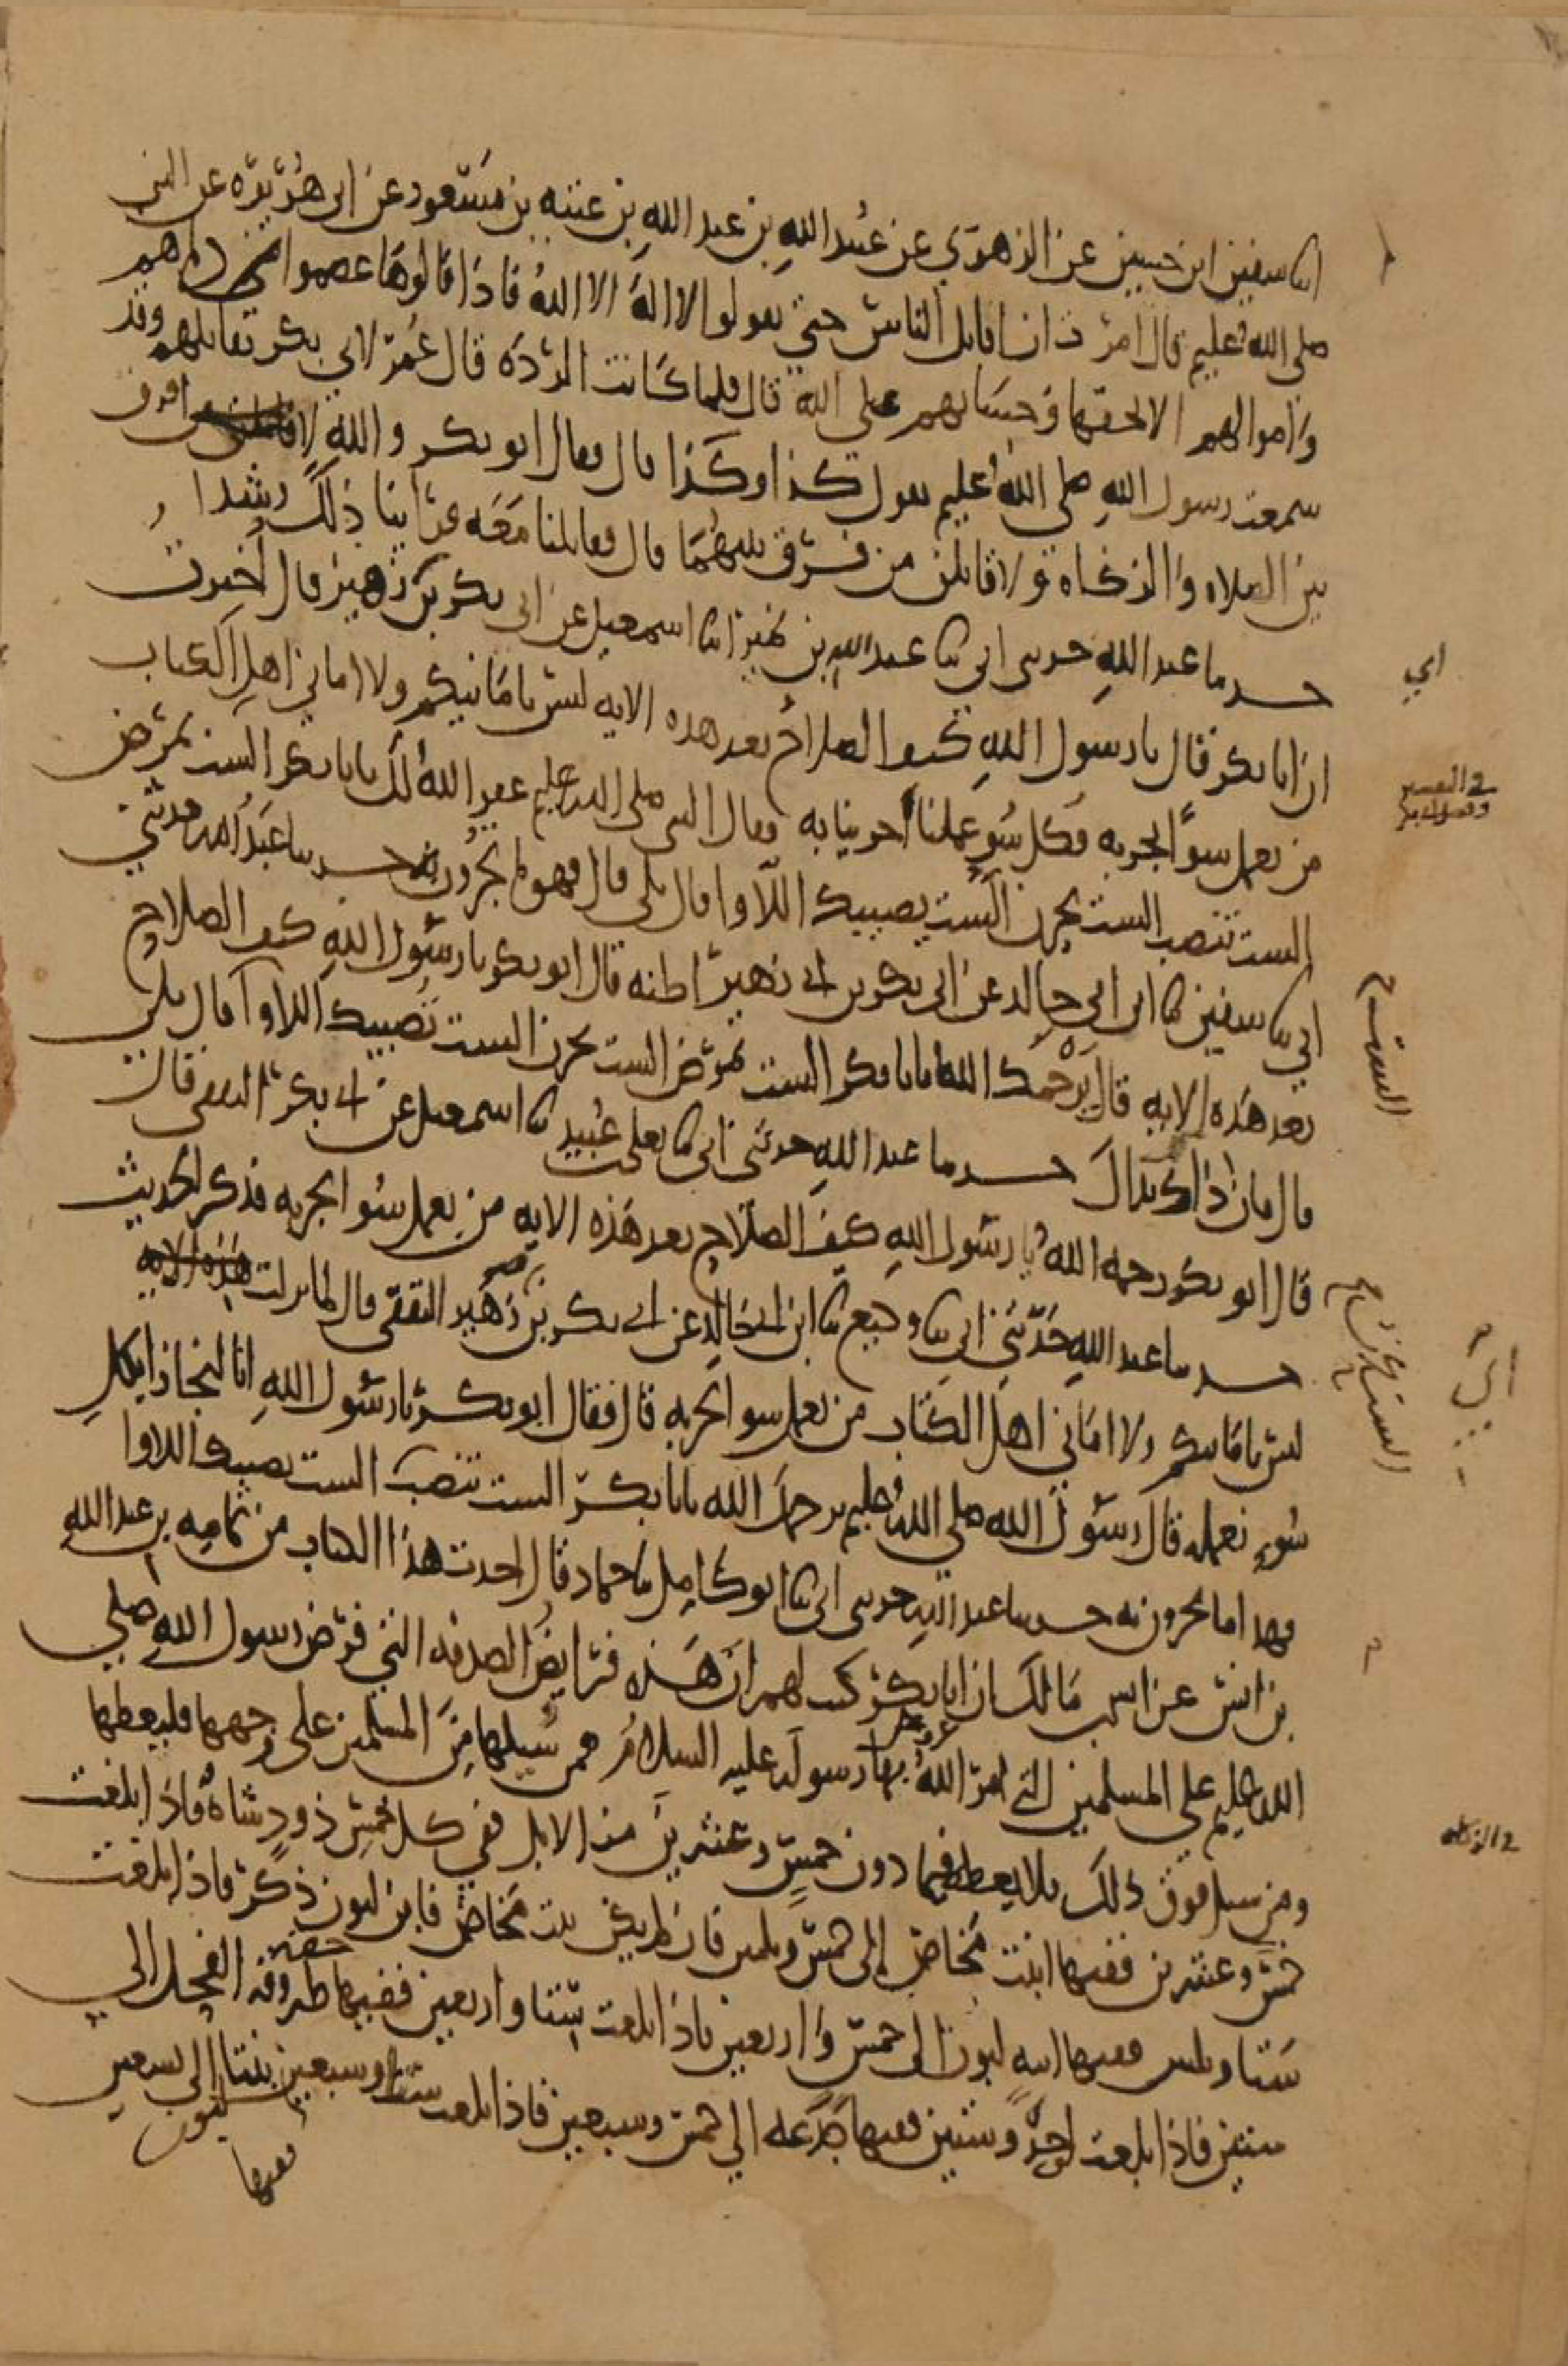 انا سفين ابن حسين عن الزهري عن عبيد الله بن عبد الله بن عتبه بن مسعود عن ابي هريره عن النبي
صلى الله عليم قال امرت ان اقاتل الناس حتي يقولوا لا اله الا الله فاذا قالوها عصموا مني دماهم
واموالهم الا بحقها وحسابهم على الله قال فلما كانت الرده قال عمر لابي بكر تقاتلهم وقد
سمعت رسول الله صلى الله عليم يقول كذا وكذا قال فقال ابو بكر والله لا افرق
بين الصلاه والزكاه ولاقاتلن من فرق بينهما قال فقاتلنا معه فراينا ذلك رشدا
حدثنا عبد الله حدثني ابي ثنا عبد الله بن نمير انا اسمعيل عن ابي بكر بن زهير قال اخبرت
ان ابا بكر قال يا رسول الله كيف الصلاح بعد هذه الايه ليس بامانيكم ولا اماني اهل الكتاب
من يعمل سوا يجز به فكل سوء عملنا اجزينا به فقال النبي صلى الله عليم غفر الله لك يا ابا بكر الست تمرض
الست تنصب الست تحزن الست يصيبك اللاوا قال بلى قال فهو ما تجزون به حدثنا عبد الله حدثني
ابي ثنا سفين ثنا ابن ابي خالد عن ابي بكر بن ابي زهير اظنه قال ابو بكر يا رسول الله كيف الصلاح
بعد هذه الايه قال يرحمك الله يا ابا بكر الست تمرض الست تحزن الست تصيبك اللاوا قال بلى
قال فان ذاك بذاك حدثنا عبد الله حدثني ابي ثنا يعلى بن عبيد ثنا اسمعيل عن ابي بكر الثقفي قال
قال ابو بكر رحمه الله يا رسول الله كيف الصلاح بعد هذه الايه من يعمل سوا يجز به فذكر الحديث
حدثنا عبد الله حدثني ابي ثنا وكيع ثنا ابن ابي خالد عن ابي بكر بن زهير الثقفي قال لما نزلت هذه الايه
ليس بامانيكم ولا اماني اهل الكتاب من يعمل سوا يجز به قال فقال ابو بكر يا رسول الله انا لنجازا بكل
سوء نعمله قال رسول الله صلي الله عليم يرحمك الله يا ابا بكر الست تنصب الست تحزن الست يصيبك اللاوا
فهذا ما تجزون به حدثنا عبد الله حدثني ابي ثنا ابو كامل ثنا حماد قال اخذت هذا الكتاب من ثمامه بن عبد الله
بن انس عن انس بن مالك ان ابا بكر كتب لهم ان هذه فرايض الصدقه التي فرض رسول الله صلي
الله عليم على المسلمين التي امر الله عز وجل بها رسوله عليه السلام فمن سيلها من المسلمين على وجهها فليعطها
ومن سيل فوق ذلك فلا يعطه فيما دون خمس وعشرين من الابل ففي كل خمس ذود شاه فاذا بلغت
خمس وعشرين ففيها ابنت مخاض الى خمس وثلثين فان لم يكن بنت مخاض فابن لبون ذكر فاذا بلغت
ستا وثلثين ففيها ابنه لبون الى خمس واربعين فاذا بلغت ستتا واربعين ففيها حقه طروقه الفحل الي
ستين فاذا بلغت احد وستين ففيها جذعه الي خمس وسبعين فاذا بلغت ستتا وسبعين ففيها بنتا لبون الى تسعين